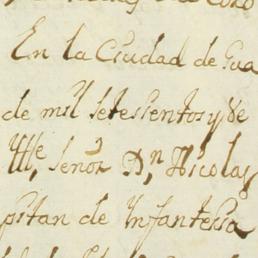 En la Ciudad de Gua
de mil setessientos y Ve
Ille, Señor Dn, Nicolas
pitan de Infanteria